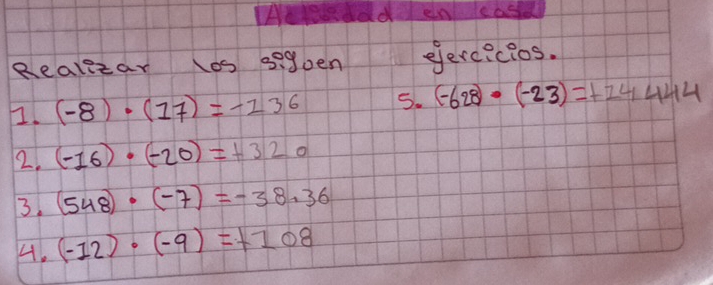 Actividad en casa
Realizar los siguen ejercicios.
1. (-8) • (17) = -136
2. (-16) • (-20) = +320
3. (548) • (-7) = -38.36
4. (-12) • (-9) = +108
5. (-628) • (-23) = +14444